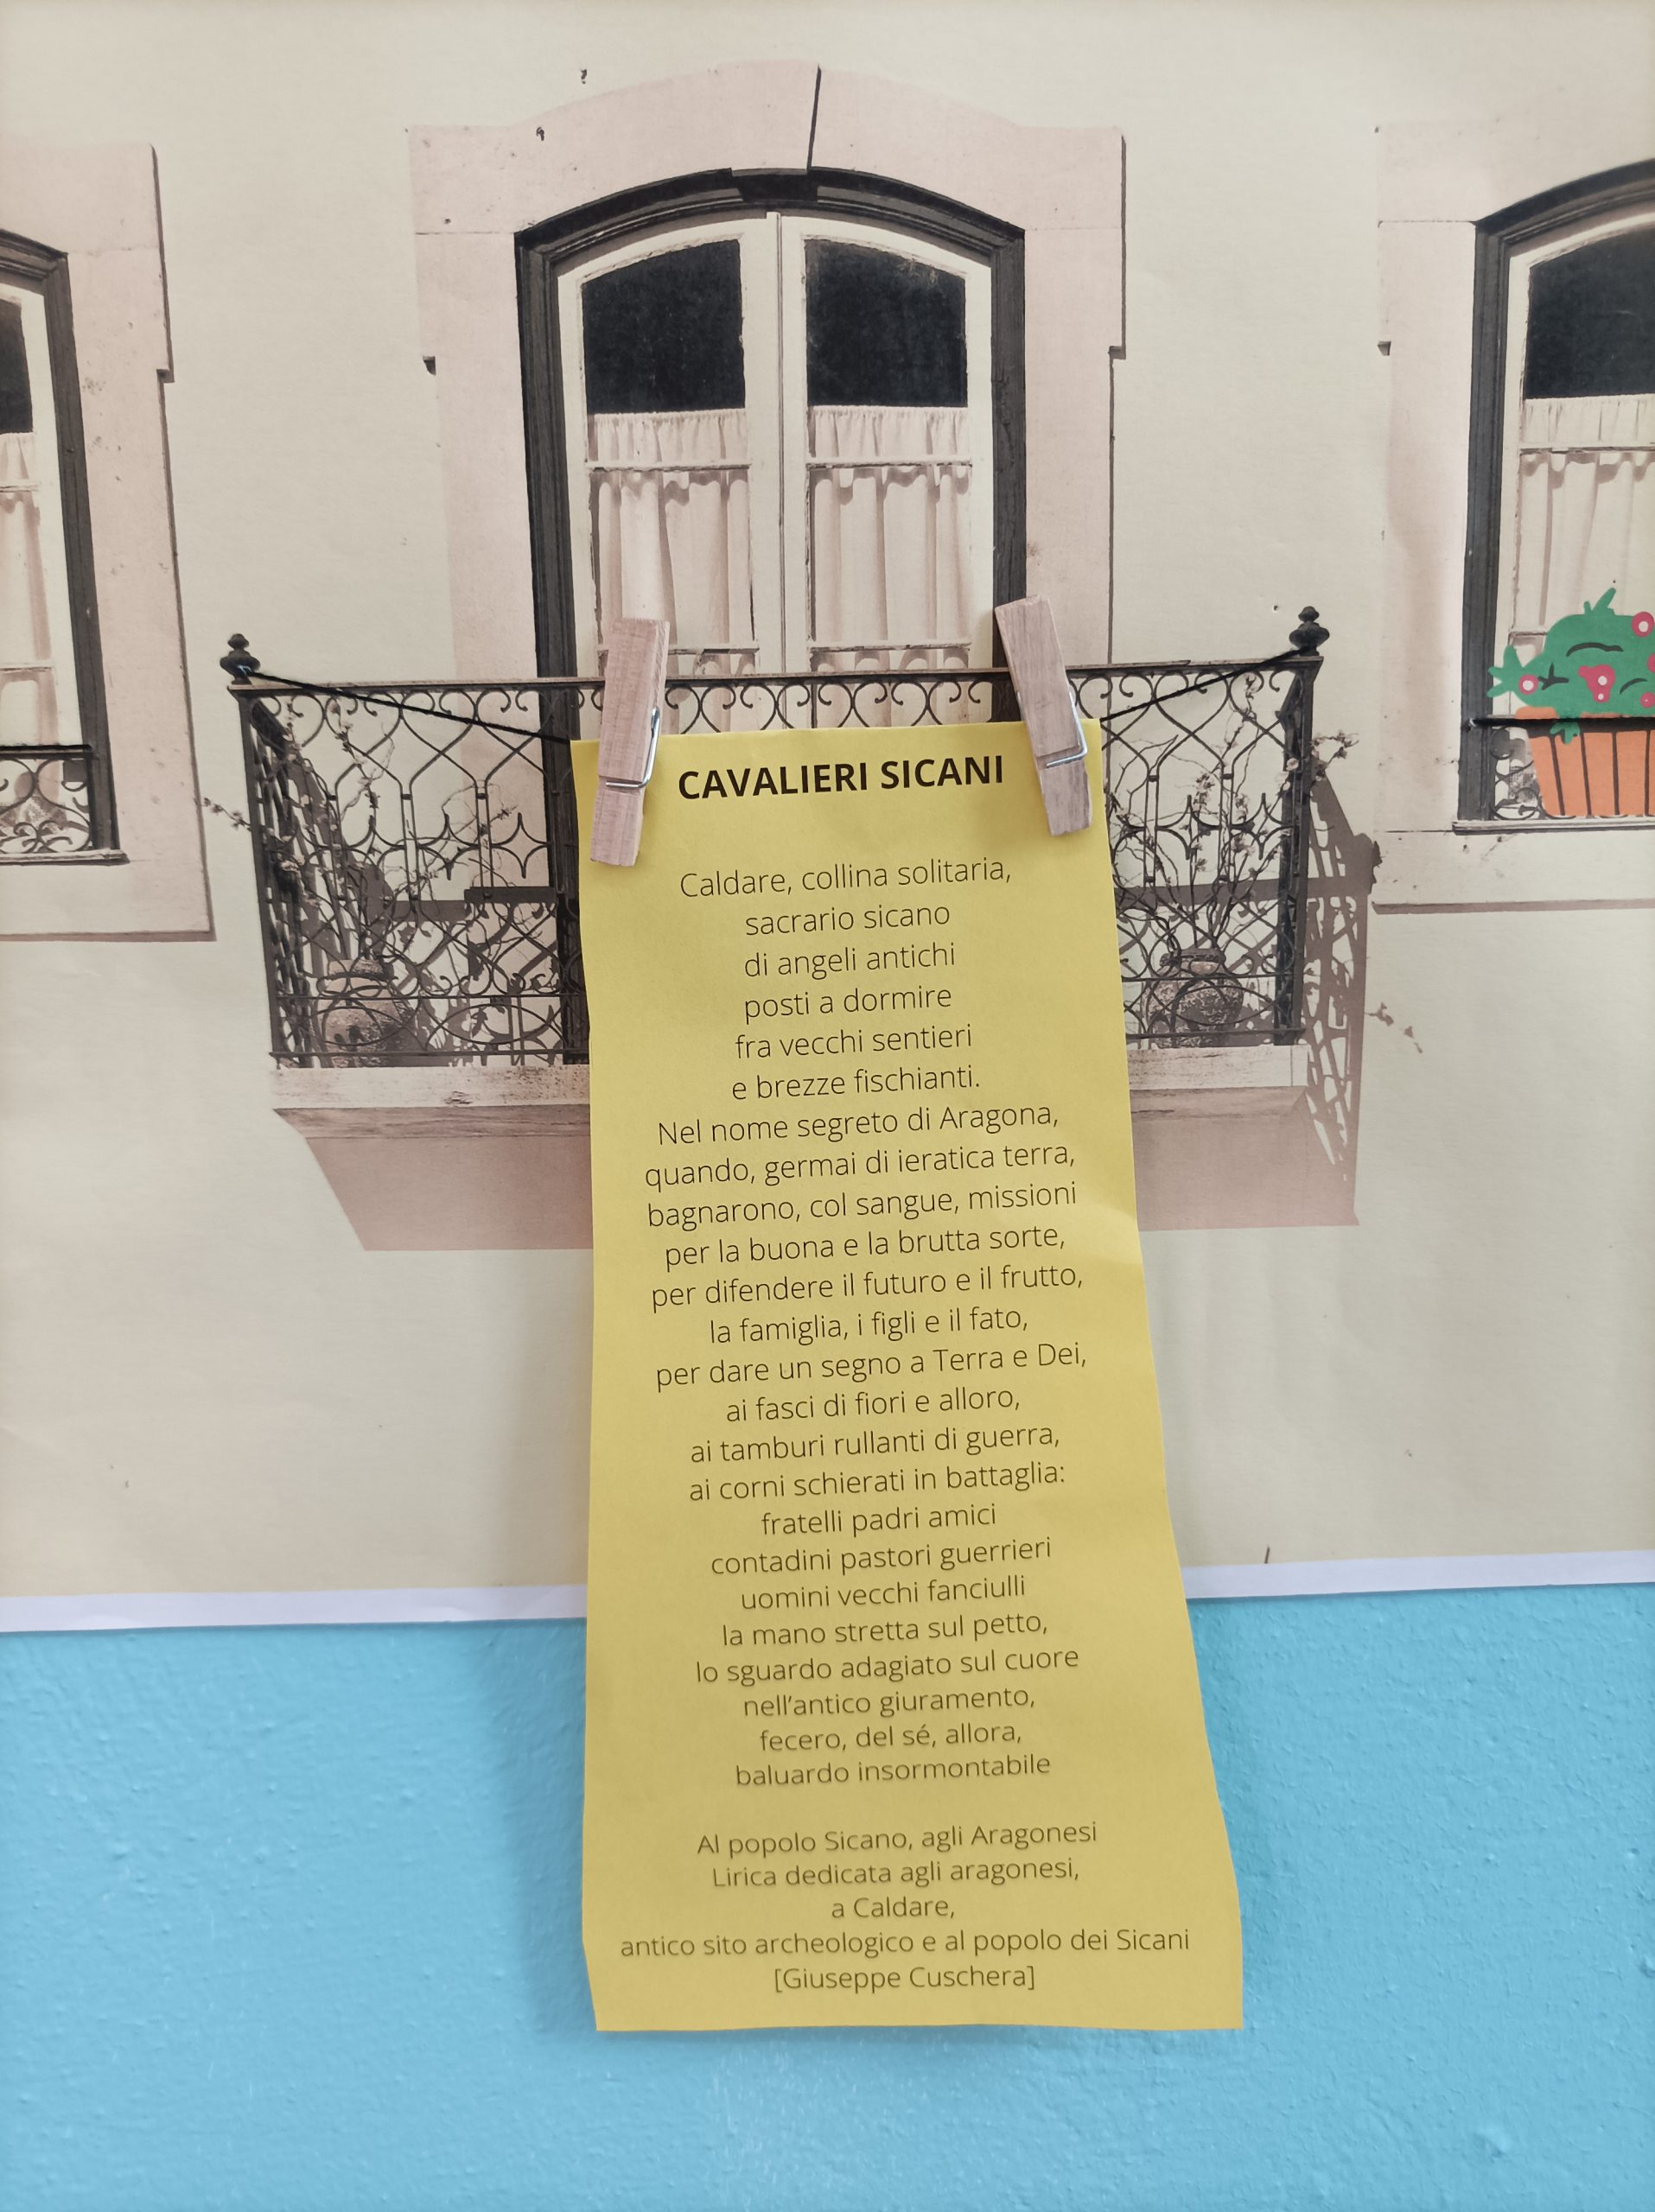 CAVALIERI SICANI
Caldare, collina solitaria,
sacrario sicano
di angeli antichi
posti a dormire
fra vecchi sentieri
e brezze fischianti.
Nel nome segreto di Aragona,
quando, germai di ieratica terra,
bagnarono, col sangue, missioni
per la buona e la brutta sorte,
per difendere il futuro e il frutto,
la famiglia, i figli e il fato,
per dare un segno a Terra e Dei,
ai fasci di fiori e alloro,
ai tamburi rullanti di guerra,
ai corni schierati in battaglia:
fratelli padri amici
contadini pastori guerrieri
uomini vecchi fanciulli
la mano stretta sul petto,
lo sguardo adagiato sul cuore
nell’antico giuramento,
fecero, del sé, allora,
baluardo insormontabile
Al popolo Sicano, agli Aragonesi
Lirica dedicata agli aragonesi,
a Caldare,
antico sito archeologico e al popolo dei Sicani
[Giuseppe Cuschera]